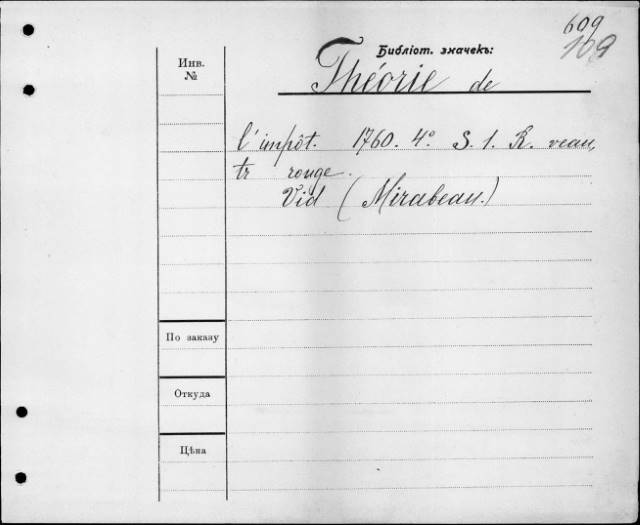 609
109
Библіот. значекъ:
Инв.
№
Théorie de
l'impôt. 1760. 4° S. l. R. veau,
tr rouge.
Vid (Mirabeau.)
По заказу
Откуда
Цѣна